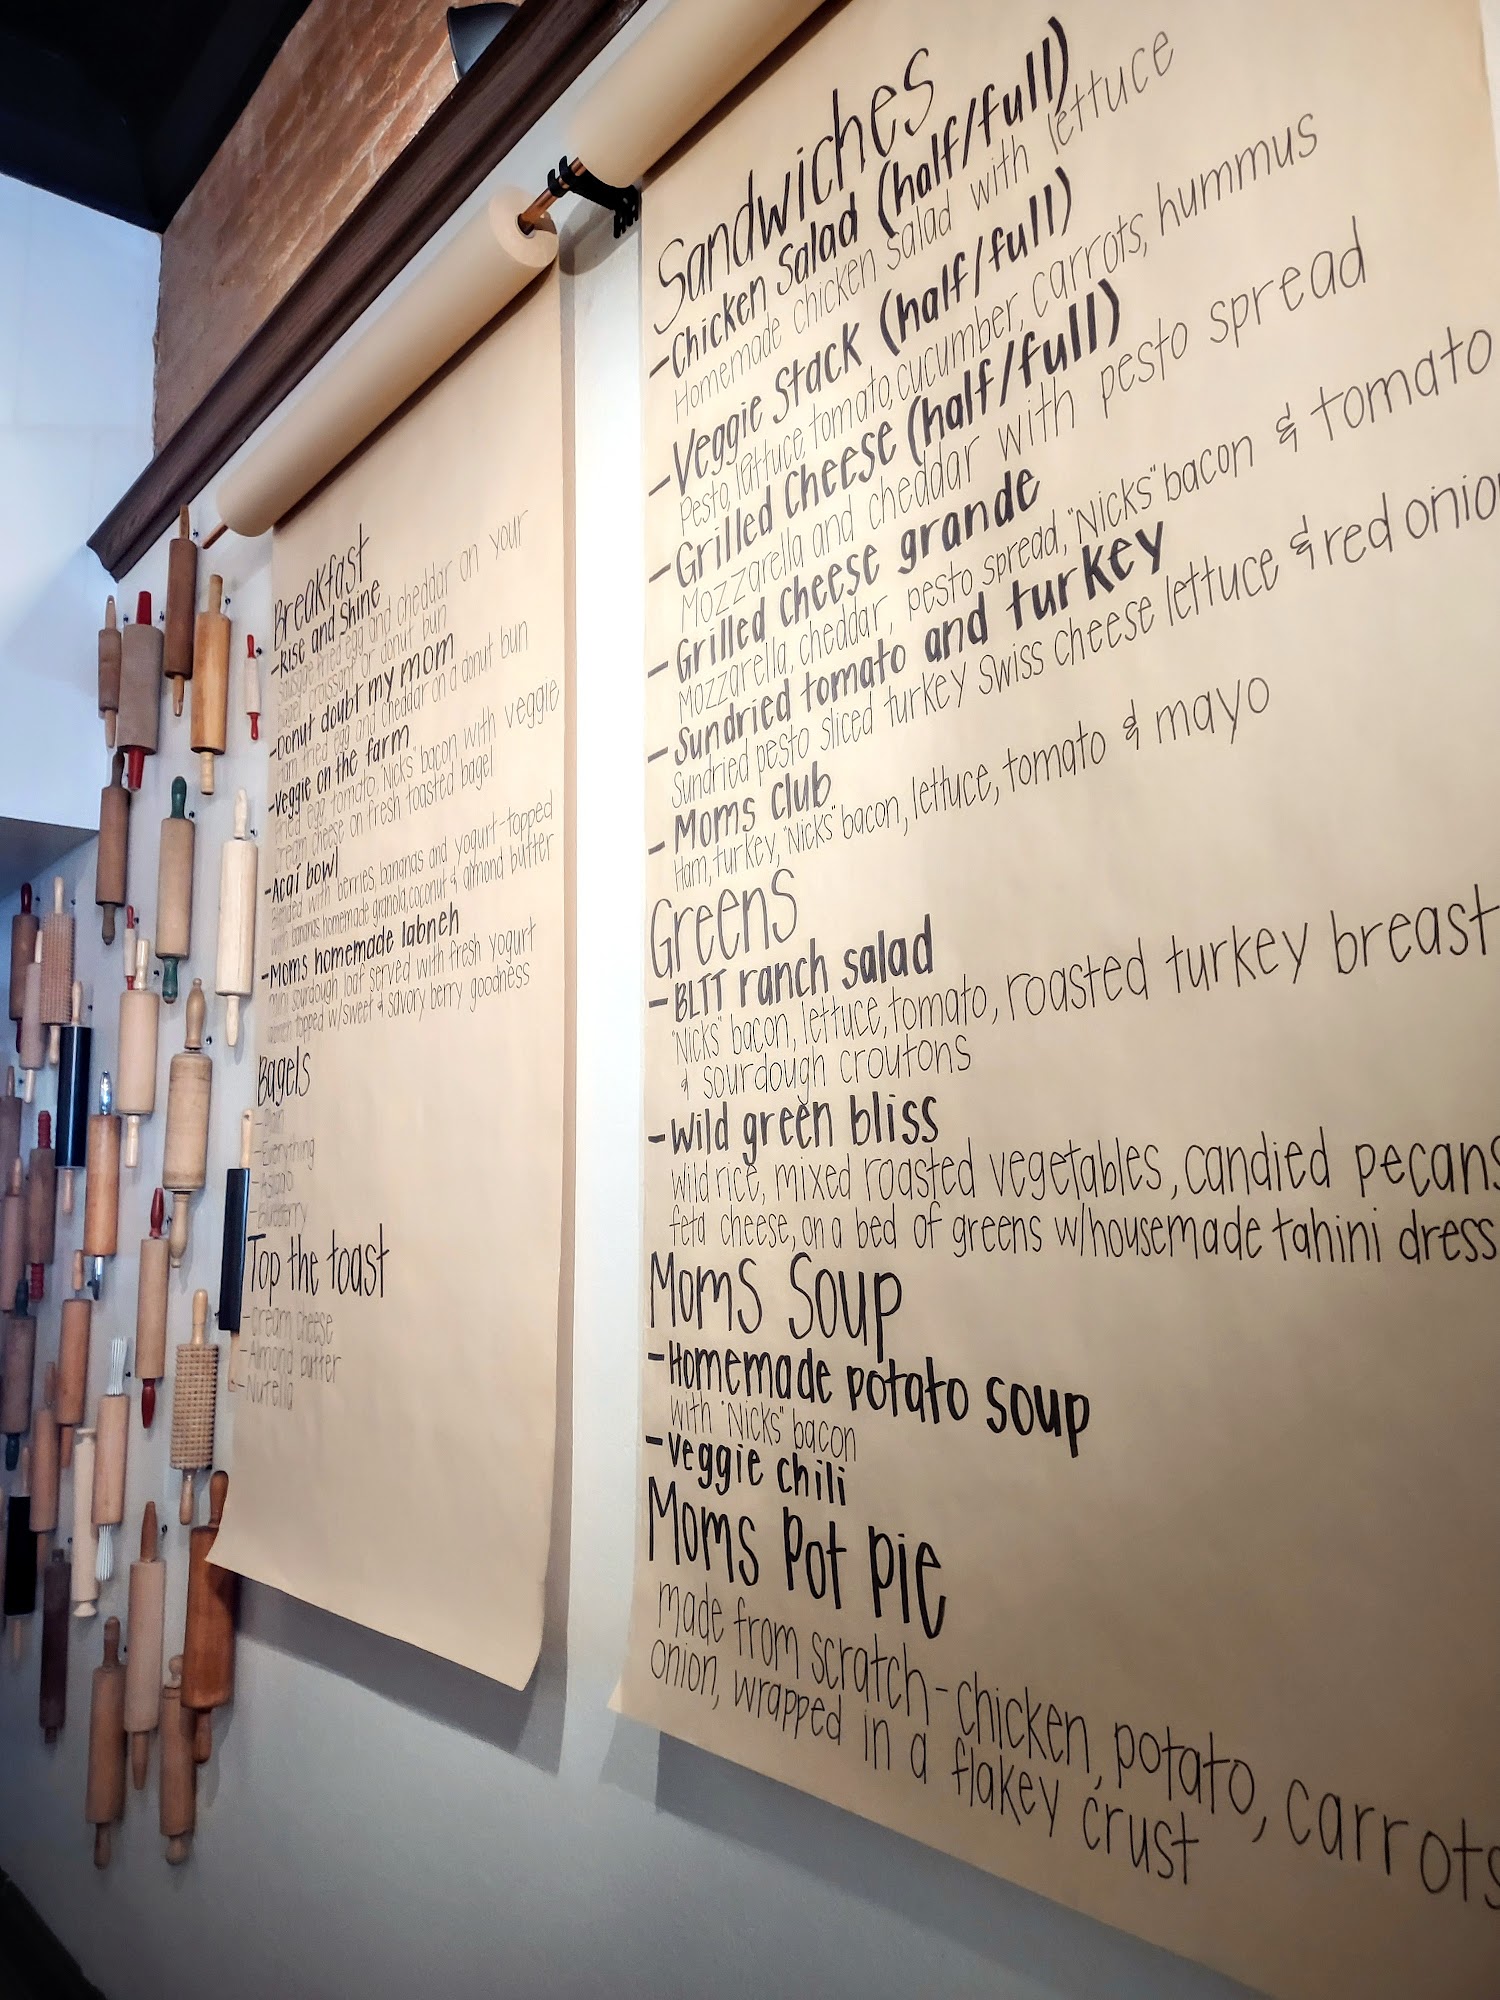 Breakfast
-Rise and Shine
Sausage, fried egg and cheddar on your
bagel, croissant or donut bun
-Donut doubt my mom
Ham, fried egg and cheddar on a donut bun
-Veggie on the farm
Fried egg, tomato, "Nicks" bacon with veggie
cream cheese on fresh toasted bagel
-Acai bowl
Blended with berries, bananas and yogurt-topped
with bananas, homemade granola, coconut & almond butter
-Moms homemade labneh
mini sourdough loaf served with fresh yogurt
topped w/sweet & savory berry goodness
Bagels
-Plain
-Everything
-Asiago
-Blueberry
Top the toast
-Cream cheese
-Almond butter
-Nutella
Sandwiches
-Chicken Salad (half/full)
Homemade chicken salad with lettuce
-Veggie Stack (half/full)
Pesto, lettuce, tomato, cucumber, carrots, hummus
-Grilled Cheese (half/full)
Mozzarella and cheddar with pesto spread
-Grilled cheese grande
Mozzarella, cheddar, pesto spread, "Nicks" bacon & tomato
-Sundried tomato and turkey
Sundried pesto sliced turkey Swiss cheese lettuce & red onion
-Moms club
Ham, turkey, "Nicks" bacon, lettuce, tomato & mayo
Greens
-BLTT ranch salad
"Nicks" bacon, lettuce, tomato, roasted turkey breast
& sourdough croutons
-Wild green bliss
Wild rice, mixed roasted vegetables, candied pecans
feta cheese, on a bed of greens w/housemade tahini dress
Moms Soup
-Homemade potato soup
with "Nicks" bacon
-veggie chili
Moms Pot Pie
made from scratch-chicken, potato, carrots
onion, wrapped in a flakey crust